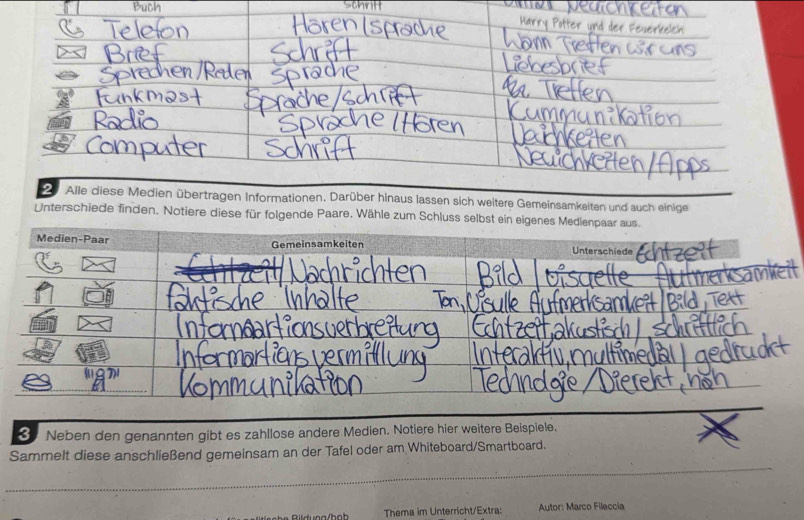 Buch Schrift Neuichkeiten
Telefon Hören/sprache Harry Potter und der Feuerkelch
Brief Schrift Wann Treffen wir uns
Sprechen/Reden Sprache Liebesbrief
Funkmast Sprache/schrift Treffen
Radio Sprache/Hören Kummunikation
Computer Schrift Neuichkeiten/Apps
2 Alle diese Medien übertragen Informationen. Darüber hinaus lassen sich weitere Gemeinsamkeiten und auch einige
Unterschiede finden. Notiere diese für folgende Paare. Wähle zum Schluss selbst ein eigenes Medienpaar aus.
Medien-Paar Gemeinsamkeiten Unterschiede Echtzeit
Echtzeit/Nachrichten Bild/visuelle Aufmerksamkeit
faktische Inhalte Ton, Visulle Aufmerksamkeit/Bild, Text
Informaartionsverbreitung Echtzeit, akustisch/schriftlich
Informartionsvermittlung Interaktiv, multimedial/gedruckt
Kommunikation Technologie/Dierekt, nah
3 Neben den genannten gibt es zahllose andere Medien. Notiere hier weitere Beispiele.
Sammelt diese anschließend gemeinsam an der Tafel oder am Whiteboard/Smartboard.
politische Bildung/bpb Thema im Unterricht/Extra: Autor: Marco Fileccia